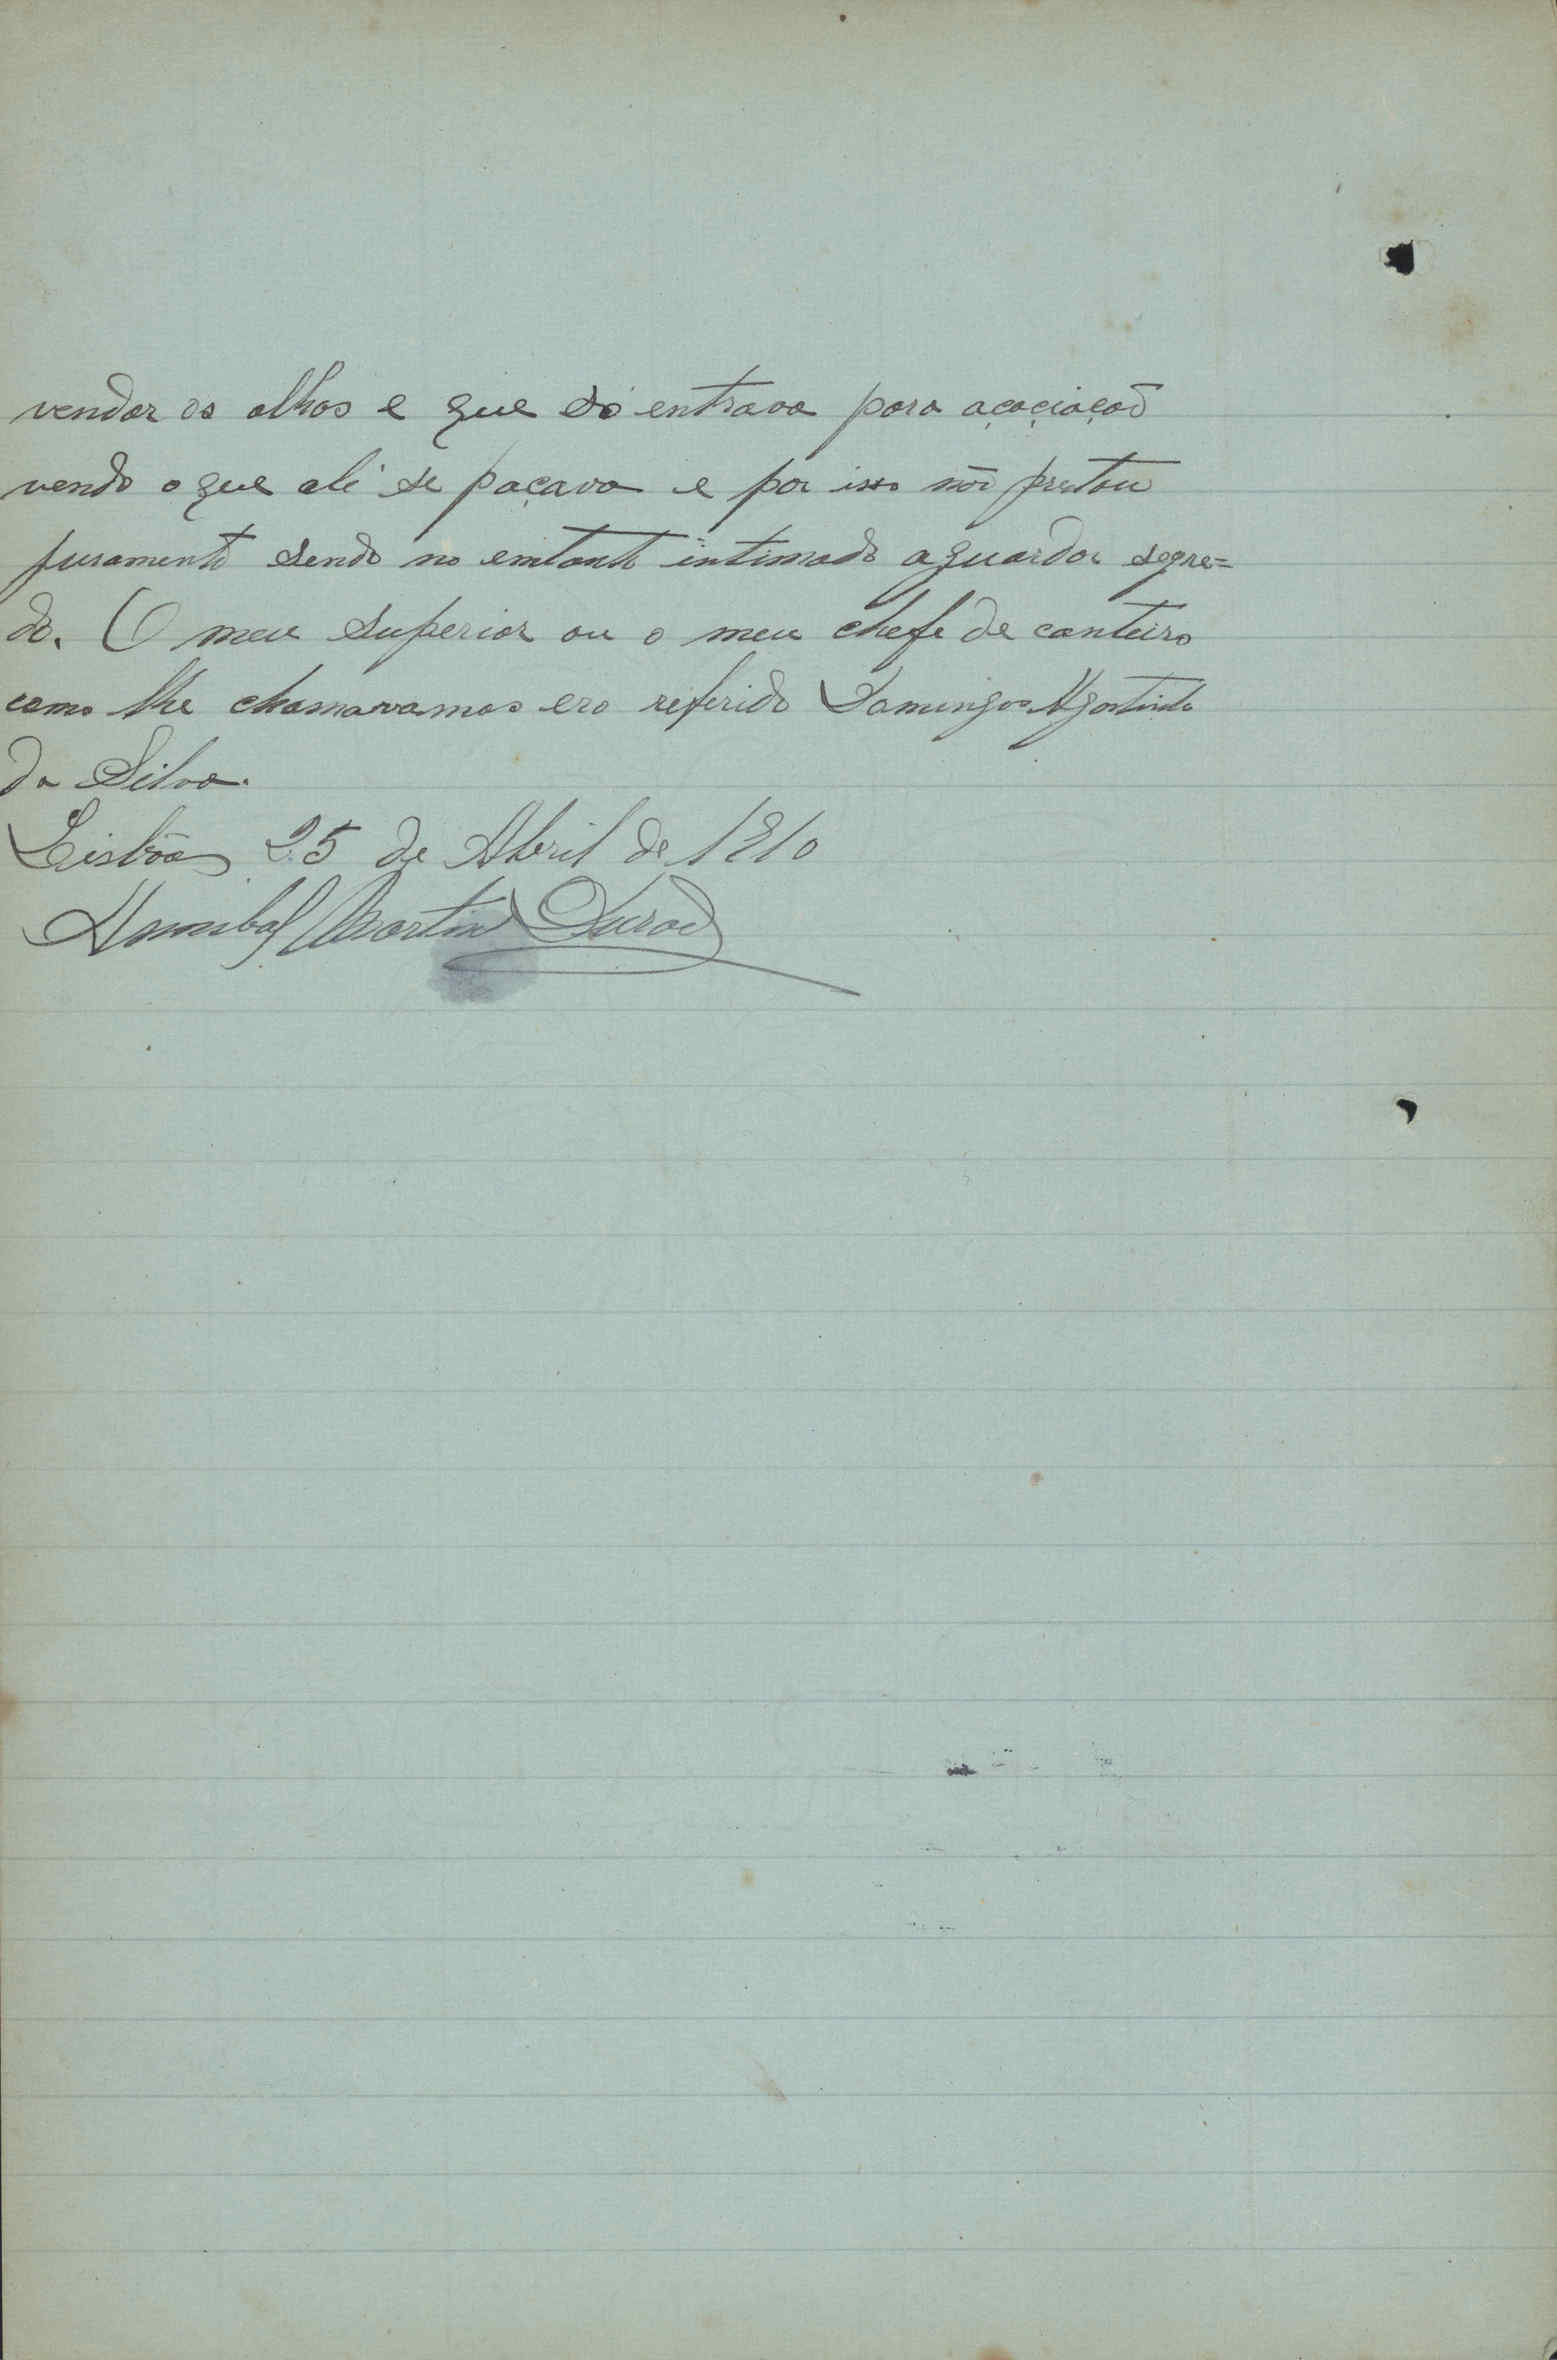 vendar os olhos e que só entrava para açoçiaçaõ
vendo o que ali se paçava e por isso nõ prestou
juramento sendo no emtanto intimado aguardar segre=
do. O meu superior ou o meu chefe de canteiro
como lhe chamavamos era referido Domingos Agostinho
da Silva.
Lisbôa 25 de Abril de 1910
Hannibal Martins Duraõ